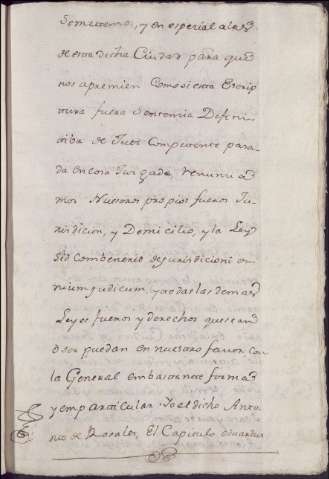 Sometemos, y en especial alas
de esta dicha Ciudad para que
nos apremien Comosiesta Escrip
tura fuera Sentencia Defini
tiba de Juez Competente pasa
da en cosa Jusgada, renunciа
mos Nuestros propios fueros Ju
risdicion, y Domicilio, y la Ley
Sid combenerid de jurisdicioni om
nium judicum, y todas las demas
Leyes fueros y derechos que sean
o ser puedan en nuestro favor con
la General embastante forma
y emparticular Yo el dicho Anto
nio de Rosales, El Capitulo